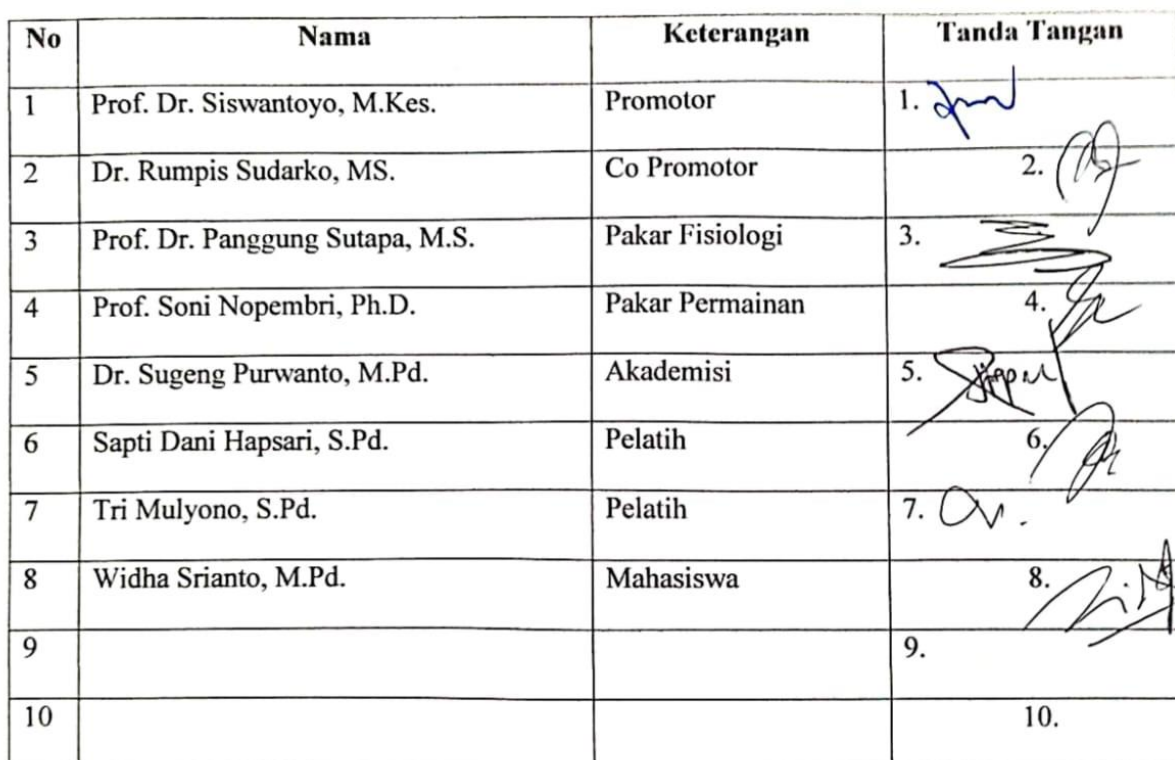 No Nama Keterangan Tanda Tangan
1 Prof. Dr. Siswantoyo, M.Kes. Promotor 1.
2 Dr. Rumpis Sudarko, MS. Co Promotor 2.
3 Prof. Dr. Panggung Sutapa, M.S. Pakar Fisiologi 3.
4 Prof. Soni Nopembri, Ph.D. Pakar Permainan 4.
5 Dr. Sugeng Purwanto, M.Pd. Akademisi 5.
6 Sapti Dani Hapsari, S.Pd. Pelatih 6.
7 Tri Mulyono, S.Pd. Pelatih 7.
8 Widha Srianto, M.Pd. Mahasiswa 8.
9 9.
10 10.